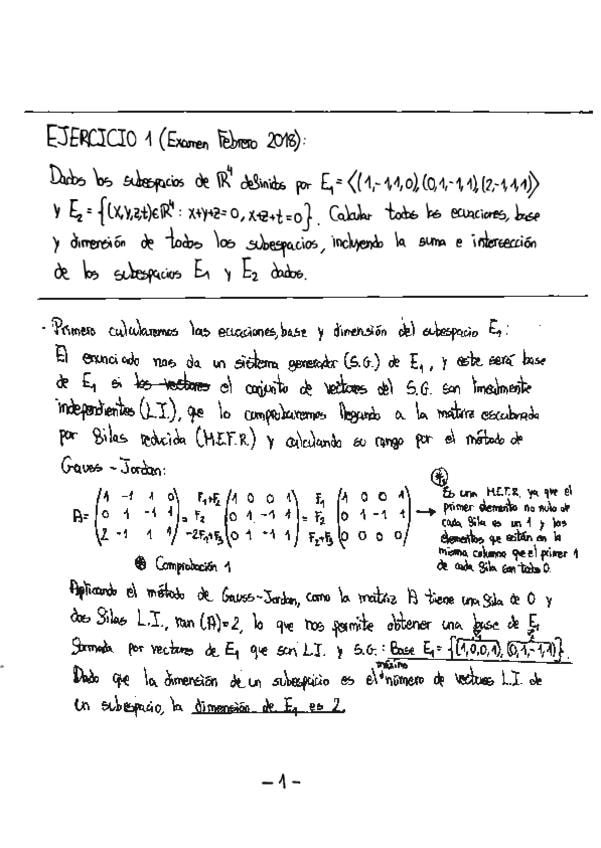 EJERCICIO 1 (Examen Febrero 2018):
Dados los subespacios de ℝ⁴ definidos por E₁=⟨(1,-1,1,0),(0,1,-1,1),(2,-1,1,1)⟩
y E₂={(x,y,z,t)∈ℝ⁴: x+y+z=0, x+z+t=0}. Calcular todas las ecuaciones, base
y dimensión de todos los subespacios, incluyendo la suma e intersección
de los subespacios E₁ y E₂ dados.
· Primero calcularemos las ecuaciones, base y dimensión del subespacio E₁:
El enunciado nos da un sistema generador (S.G.) de E₁, y este será base
de E₁ si los vectores el conjunto de vectores del S.G. son linealmente
independientes (L.I.), que lo comprobaremos llegando a la matriz escalonada
por filas reducida (M.E.F.R.) y calculando su rango por el método de
Gauss-Jordan:
A= (1 -1 1 0 / 0 1 -1 1 / 2 -1 1 1) = F₁+F₂ / F₂ / -2F₁+F₃ (1 0 0 1 / 0 1 -1 1 / 0 1 -1 1) = F₁ / F₂ / F₂+F₃ (1 0 0 1 / 0 1 -1 1 / 0 0 0 0) →
* Es una M.E.F.R. ya que el
primer elemento no nulo de
cada fila es un 1 y los
elementos que están en la
misma columna que el primer 1
de cada fila son todo 0.
* Comprobación 1
Aplicando el método de Gauss-Jordan, como la matriz A tiene una fila de 0 y
dos filas L.I., ran(A)=2, lo que nos permite obtener una base de E₁
formada por vectores de E₁ que son L.I. y S.G.: Base E₁={(1,0,0,1),(0,1,-1,1)}.
Dado que la dimensión de un subespacio es el máximo número de vectores L.I. de
un subespacio, la dimensión de E₁ es 2.
-1-